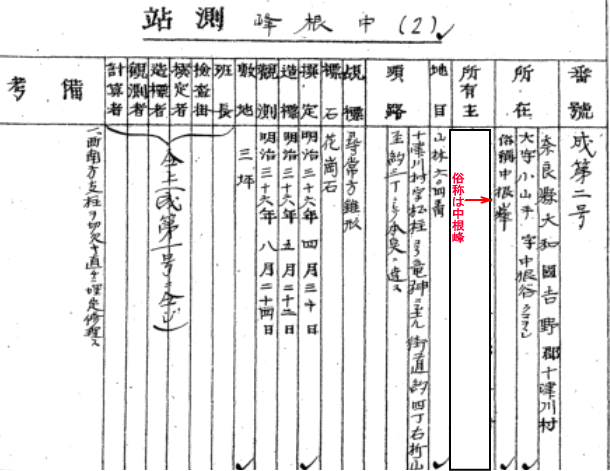 站測 峰根中(2)
番號 成第二号
所在 奈良縣大和國吉野郡十津川村
大字小山手 字中根谷
俗稱中根峯
俗称は中根峰
所有主
地目 山林
順路 十津川村字 ヨリ竜神ニ至ル街道約四丁右折山
至約三丁ニシテ本点ニ達ス
覘標 尋常方錐形
標石 花崗石
撰定 明治三十六年四月三十日
造標 明治三十六年五月二十二日
觀測 明治三十六年八月二十四日
敷地 三坪
班長
檢査掛
撰定者
造標者
觀測者
計算者
仝上(成第一号ニ仝じ)
備考 西南方支柱ヲ切欠